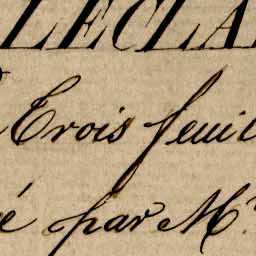 LECLA
Trois feuil
é par Mr